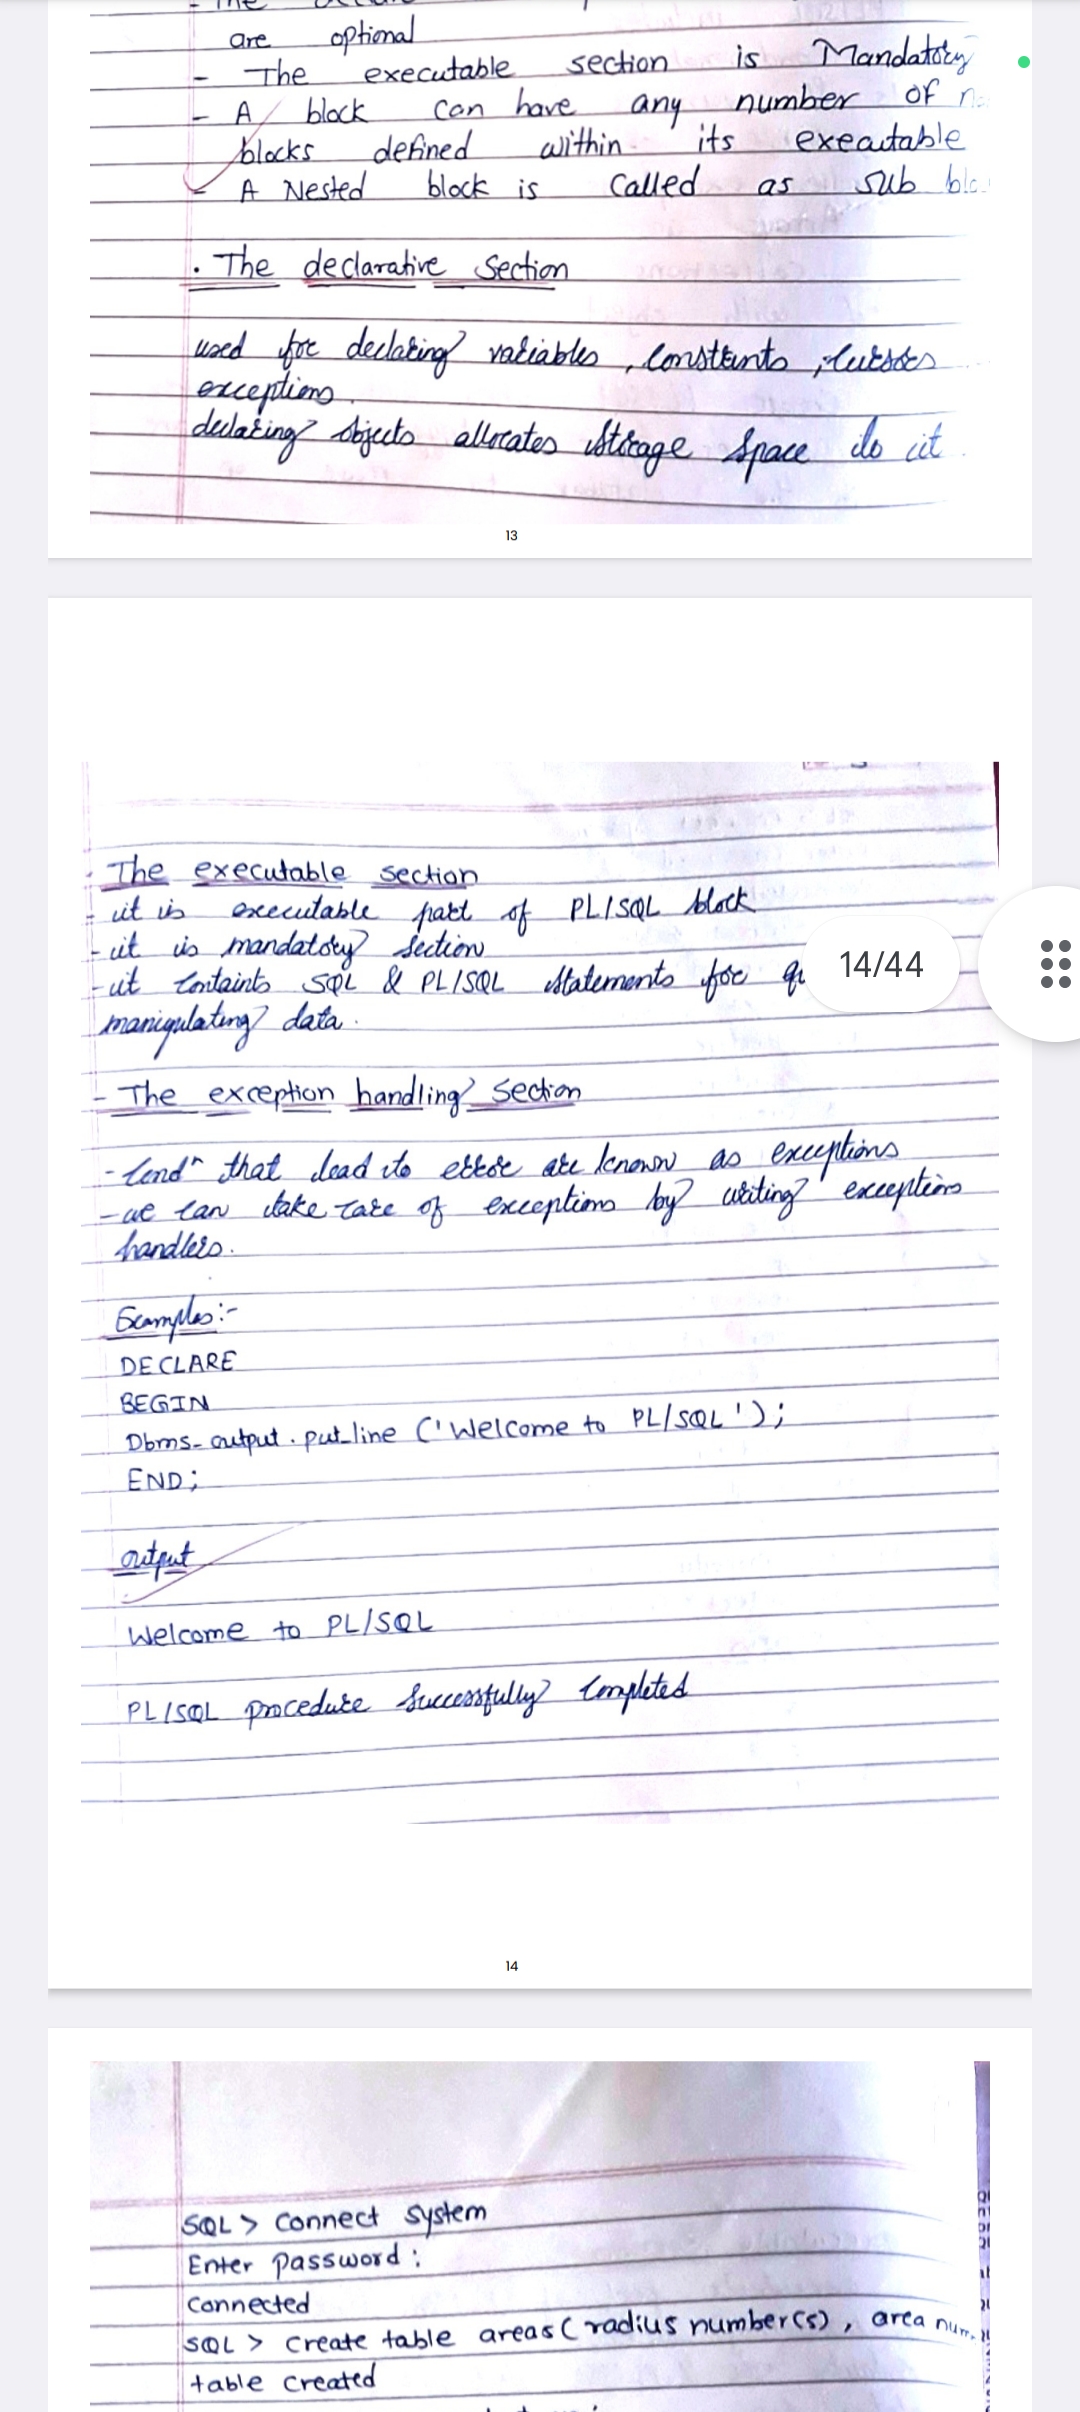 are optional
- The executable section is Mandatory
- A block can have any number of
blocks defined within its executable
- A Nested block is called as sub
. The declarative section
used for declaring variables, constants, cursors
exceptions.
declaring objects allocates storage space to it
13
The executable section
- it is executable part of PL/SQL block
- it is mandatory section
- it containts SQL & PL/SQL statements for
14/44
manipulating data.
- The exception handling section
- condn that lead to error are known as exceptions
- we can take care of exceptions by writing exception
handlers.
Examples:-
DECLARE
BEGIN
Dbms_output.put_line ('Welcome to PL/SQL');
END;
output
Welcome to PL/SQL
PL/SQL procedure successfully completed
14
SQL > connect system
Enter password :
connected
SQL > create table areas (radius number(5), area
table created